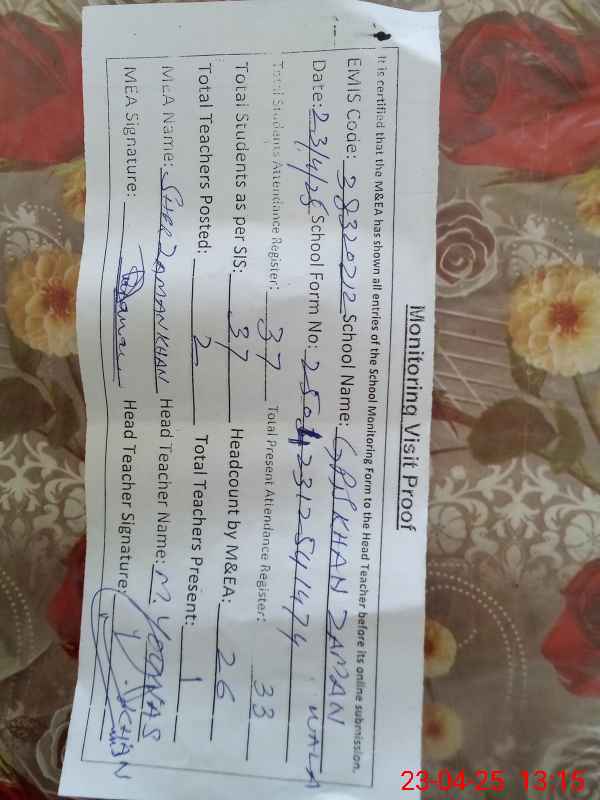 Monitoring Visit Proof
It is certified that the M&EA has shown all entries of the School Monitoring Form to the Head Teacher before its online submission.
EMIS Code: 38320212 School Name: GPS KHAN ZAMAN WALA
Date: 23/4/25 School Form No:
Total Students Attendance Register: 37 Total Present Attendance Register: 33
Total Students as per SIS: 37 Headcount by M&EA: 26
Total Teachers Posted: 2 Total Teachers Present: 1
MEA Name: SHER ZAMAN KHAN Head Teacher Name: M. YOUNAS
MEA Signature: Head Teacher Signature: Y. KHAN
23-04-25 13:15